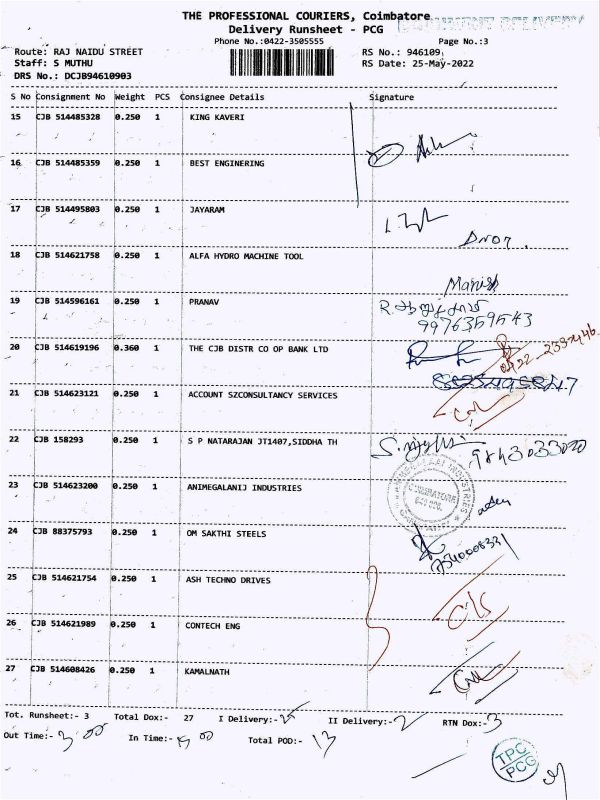 THE PROFESSIONAL COURIERS, Coimbatore
Delivery Runsheet - PCG
Phone No.:0422-3505555
Page No.:3
Route: RAJ NAIDU STREET
RS No.: 946109
Staff: S MUTHU
RS Date: 25-May-2022
DRS No.: DCJB94610903
S No Consignment No Weight PCS Consignee Details Signature
15 CJB 514485328 0.250 1 KING KAVERI
16 CJB 514485359 0.250 1 BEST ENGINERING
17 CJB 514495803 0.250 1 JAYARAM
18 CJB 514621758 0.250 1 ALFA HYDRO MACHINE TOOL
19 CJB 514596161 0.250 1 PRANAV
9976359543
20 CJB 514619196 0.360 1 THE CJB DISTR CO OP BANK LTD
21 CJB 514623121 0.250 1 ACCOUNT SZCONSULTANCY SERVICES
22 CJB 158293 0.250 1 S P NATARAJAN JT1407,SIDDHA TH
9843033020
23 CJB 514623200 0.250 1 ANIMEGALANIJ INDUSTRIES
COIMBATORE
24 CJB 88375793 0.250 1 OM SAKTHI STEELS
25 CJB 514621754 0.250 1 ASH TECHNO DRIVES
26 CJB 514621989 0.250 1 CONTECH ENG
27 CJB 514608426 0.250 1 KAMALNATH
Tot. Runsheet:- 3 Total Dox:- 27 I Delivery:- II Delivery:- 2 RTN Dox:- 3
Out Time:- 3 00 In Time:- Total POD:- 13
TPC
PCG